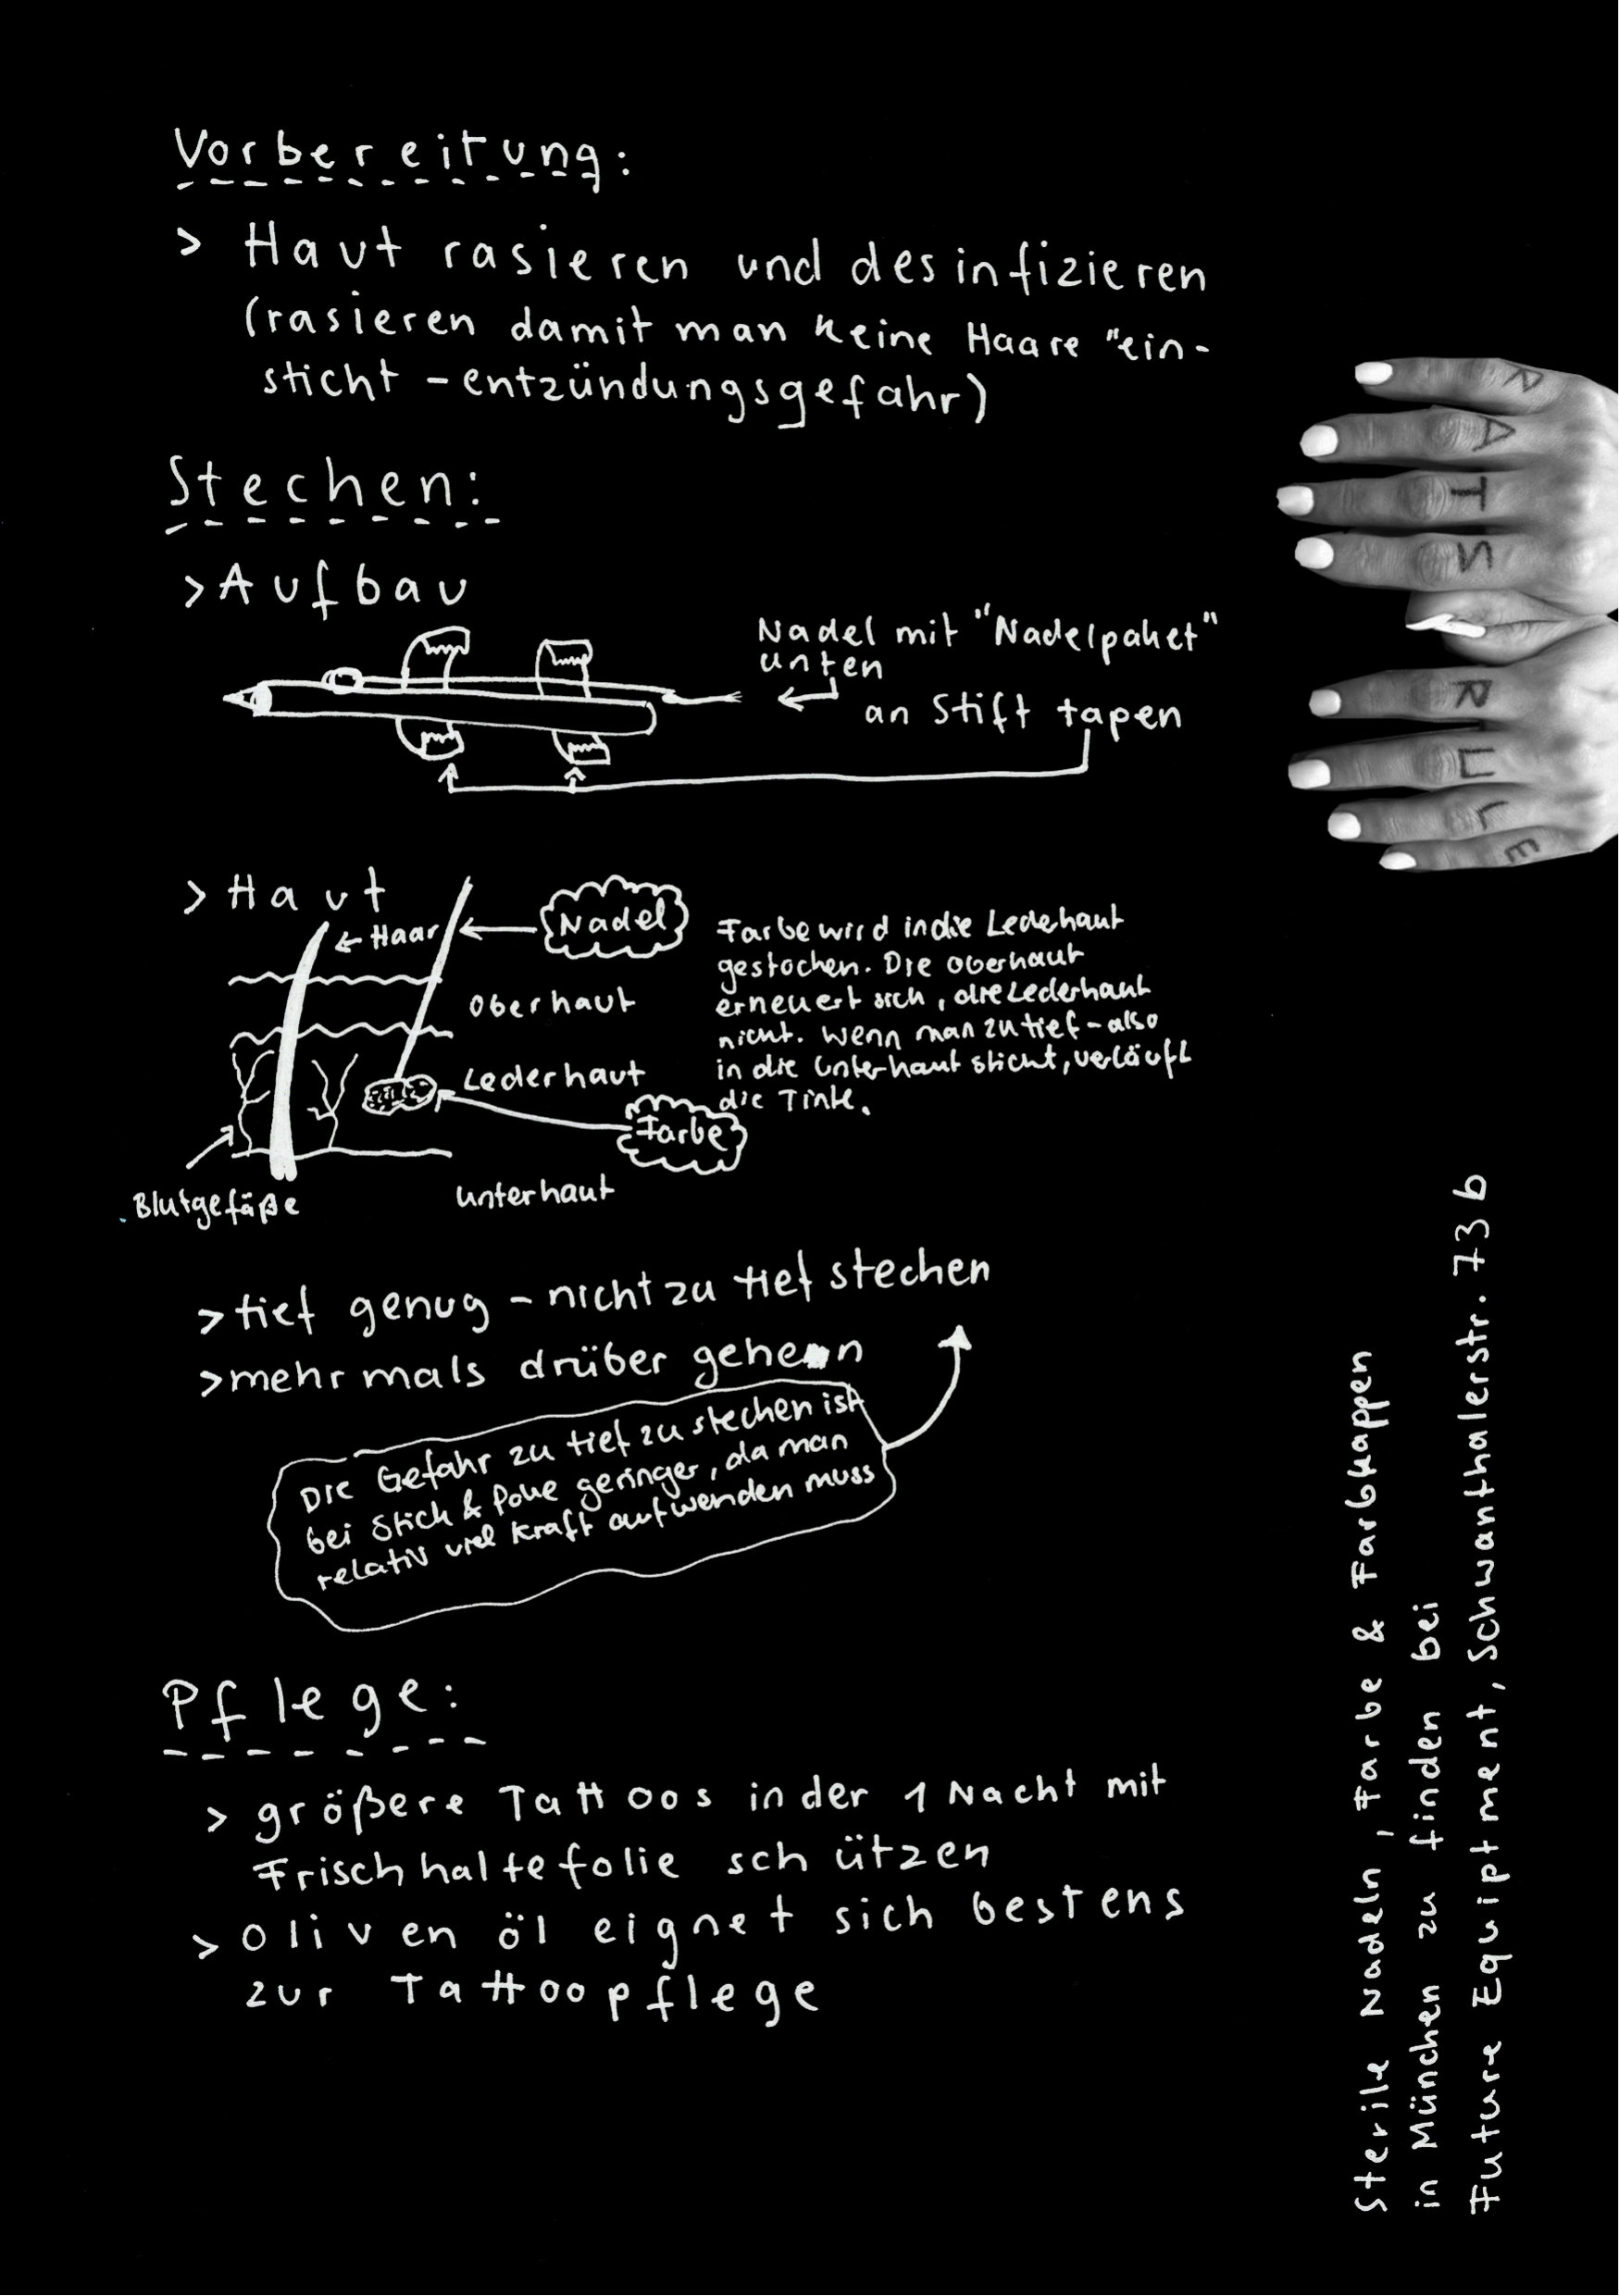 Vorbereitung:
> Haut rasieren und desinfizieren
(rasieren damit man keine Haare "ein-
sticht - entzündungsgefahr)
Stechen:
> Aufbau
Nadel mit "Nadelpaket"
unten
an Stift tapen
> Haut
← Haar
Nadel
Oberhaut
Lederhaut
Farbe
Blutgefäße
unterhaut
Farbe wird in die Lederhaut
gestochen. Die Oberhaut
erneuert sich, die Lederhaut
nicht. Wenn man zu tief - also
in die Unterhaut sticht, verläuft
die Tinte.
> tief genug - nicht zu tief stechen
> mehrmals drüber gehen
Die Gefahr zu tief zu stechen ist
bei Stick & Poke geringer, da man
relativ viel Kraft aufwenden muss
Pflege:
> größere Tattoos in der 1 Nacht mit
Frischhaltefolie schützen
> Olivenöl eignet sich bestens
zur Tattoopflege
RATS
RULE
Sterile Nadeln, Farbe & Farbkappen
in München zu finden bei
Future Equiptment, Schwanthalerstr. 73b